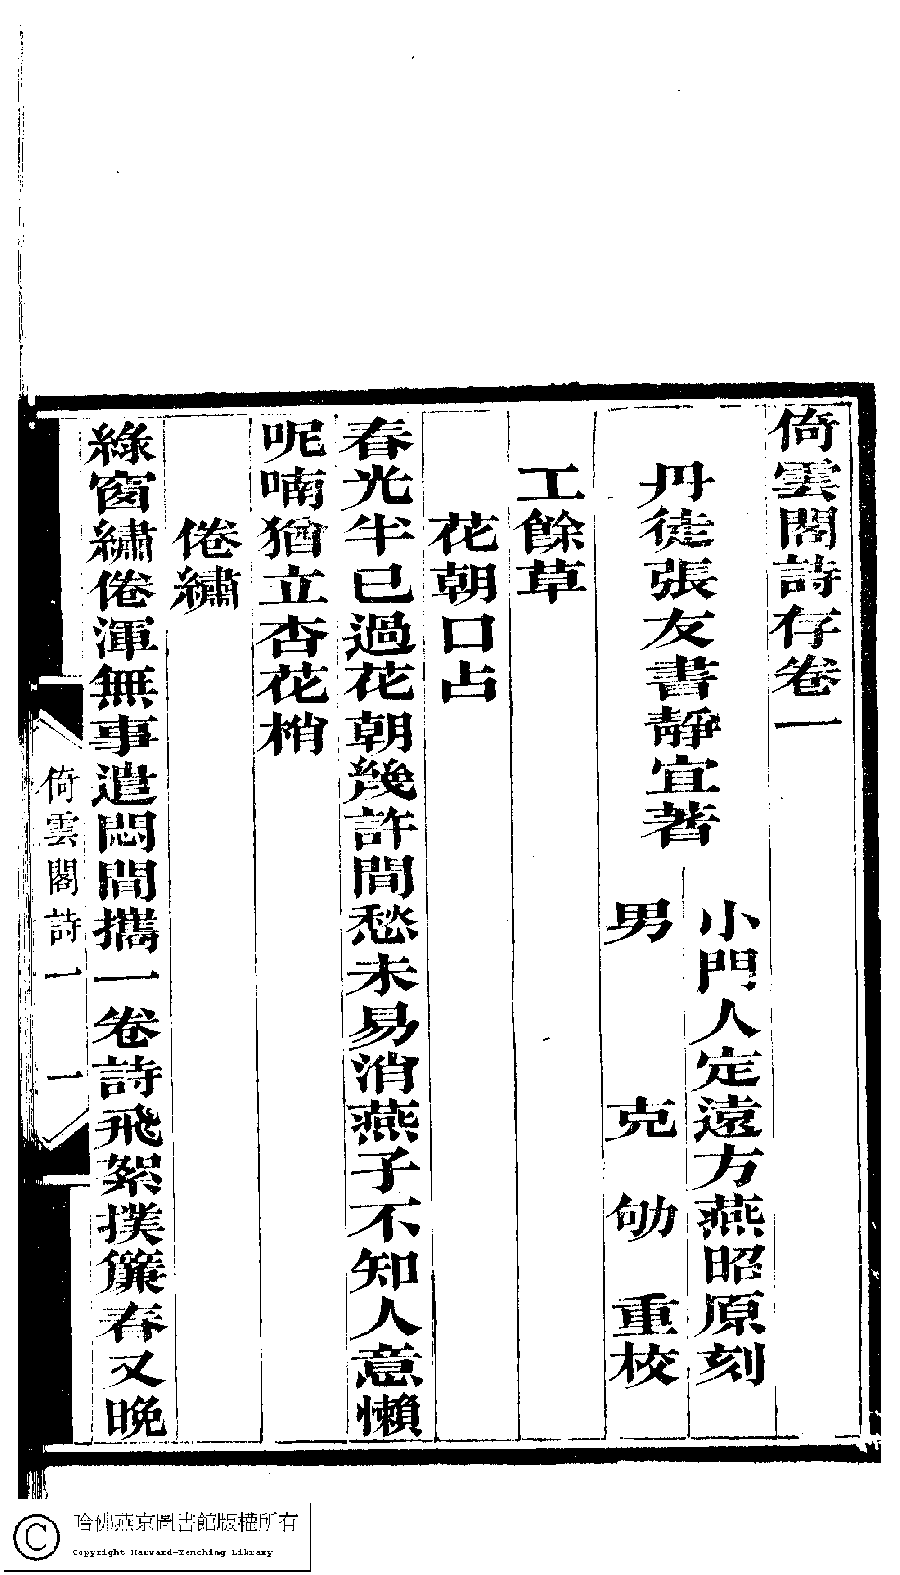 倚雲閣詩存卷一
丹徒張友書靜宜著
小門人定遠方燕昭原刻
男克劬重校
工餘草
花朝口占
春光半已過花朝幾許閒愁未易消燕子不知人意懶
呢喃猶立杏花梢
倦繡
綠窗繡倦渾無事遣悶閒攜一卷詩飛絮撲簾春又晚
倚雲閣詩一
一
哈佛燕京圖書館版權所有
Copyright Harvard-Yenching Library